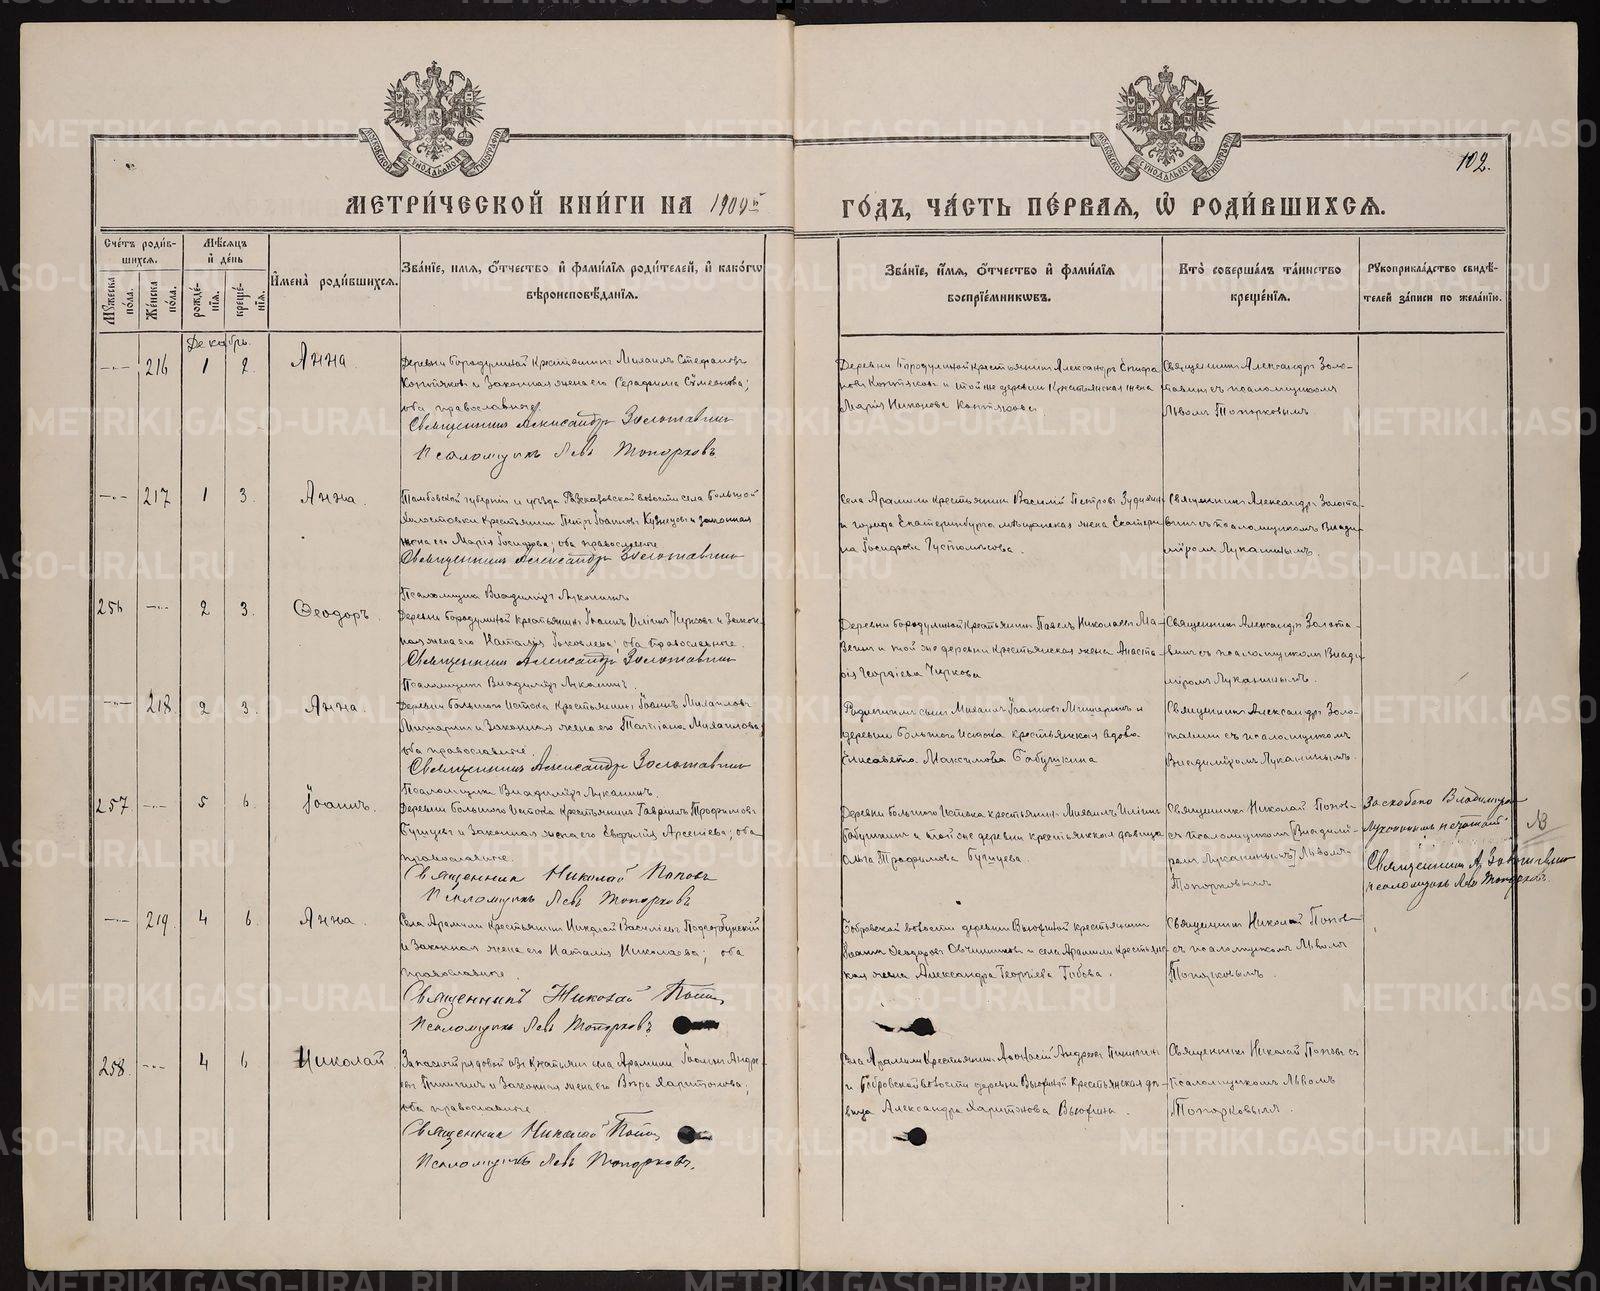 МОСКОВСКОЙ СѴНОДАЛЬНОЙ ТИПОГРАФІИ
МОСКОВСКОЙ СѴНОДАЛЬНОЙ ТИПОГРАФІИ
102.
МЕТРИ́ЧЕСКОЙ КНИ́ГИ НА 1909й
ГО́ДЪ, ЧА́СТЬ ПЕ́РВАЯ, Ѡ҆ РОДИ́ВШИХСѦ.
Сче́тъ роди́в-
шихсѧ.
Мѣ́сѧцъ
и҆ де́нь
Мꙋ́жеска по́ла.
Же́нска по́ла.
рожде́-
нїѧ.
креще́-
нїѧ.
И҆мена̀ роди́вшихсѧ.
Зва́нїе, и҆мѧ, ѻ҆́тчество и҆ фами́лїѧ роди́телей, и҆ како́гѡ
вѣроисповѣ́данїѧ.
Зва́нїе, и҆́мѧ, ѻ҆́тчество и҆ фами́лїѧ
воспрїе́мникѡвъ.
Кто̀ соверша́лъ та́инство
креще́нїѧ.
Рꙋкоприкла́дство свидѣ́-
телей за́писи по жела́нїю.
Декабрь.
216 1 2. Анна
Деревни Бородулиной крестьянинъ Михаилъ Стефановъ
Коптяковъ и законная жена его Серафима Сѵмеонова;
оба православные.
Священникъ Александръ Золотавинъ
Псаломщикъ Левъ Топорковъ.
Деревни Бородулиной крестьянинъ Александръ
Коптяковъ и той же деревни крестьянская жена
Марія Никонова Коптякова.
Священникъ Александръ Золо-
тавинъ съ псаломщикомъ
Львомъ Топорковымъ
217 1 3. Анна.
Тамбовской губерніи и уѣзда волости села Большой
крестьянинъ Петръ Іоанновъ Кузнецовъ и законная
жена его Марія Іосифова; оба православные
Священникъ Александръ Золотавинъ
Псаломщикъ Владиміръ Луканинъ
Села Арамили крестьянинъ Василій Петровъ
и города Екатеринбурга мѣщанская жена Екатери-
на Іосифова
Священникъ Александръ Золота-
винъ съ псаломщикомъ Влади-
міромъ Луканинымъ.
256 2 3. Ѳеодоръ.
Деревни Бородулиной крестьянинъ Іоаннъ Иліинъ Чирковъ и закон-
ная жена его Наталія Іаковлева; оба православные.
Священникъ Александръ Золотавинъ
Псаломщикъ Владиміръ Луканинъ.
Деревни Бородулиной крестьянинъ Павелъ Николаевъ
и той же деревни крестьянская жена Анаста-
сія Георгіева Чиркова
Священникъ Александръ Золота-
винъ съ псаломщикомъ Влади-
міромъ Луканинымъ.
218 2 3. Анна.
Деревни Большого Истока крестьянинъ Іоаннъ Михаиловъ
и законная жена его Татіана Михаилова;
оба православные.
Священникъ Александръ Золотавинъ
Псаломщикъ Владиміръ Луканинъ.
Михаилъ Іоанновъ и
деревни Большого Истока крестьянская вдова
Елисавета Максимова Бабушкина
Священникъ Александръ Золо-
тавинъ съ псаломщикомъ
Владиміромъ Луканинымъ.
257 5 6. Іоаннъ.
Деревни Большого Истока крестьянинъ Гавріилъ Трофимовъ
и законная жена его Евфимія Арсеніева; оба
православные.
Священникъ Николай Поповъ
Псаломщикъ Левъ Топорковъ
Деревни Большого Истока крестьянинъ Михаилъ Иліинъ
Бабушкинъ и той же деревни крестьянская дѣвица
Ольга Трофимова
Священникъ Николай Поповъ
съ псаломщикомъ [Владимі-
ромъ Луканинымъ] Львомъ
Топорковымъ
Заскоблено Владиміромъ
Луканинымъ не читать
Священникъ А. Золотавинъ
псаломщикъ Левъ Топорковъ.
219. 4 6. Анна.
Села Арамили крестьянинъ Николай Василіевъ
и законная жена его Наталія Николаева; оба
православные.
Священникъ Николай Поповъ
Псаломщикъ Левъ Топорковъ
Бобровской волости деревни крестьянинъ
Іоаннъ Ѳеодоровъ Овчинниковъ и села Арамили крестьянс-
кая жена Александра Георгіева
Священникъ Николай Поповъ
съ псаломщикомъ Львомъ
Топорковымъ.
258. 4 6 Николай
Запасной рядовой изъ крестьянъ села Арамили Іоаннъ Андре-
евъ и законная жена его Вѣра Харитонова;
оба православные.
Священникъ Николай Поповъ
Псаломщикъ Левъ Топорковъ.
Села Арамили крестьянинъ Андреевъ
и Бобровской волости деревни крестьянская дѣ-
вица Александра Харитонова
Священникъ Николай Поповъ съ
псаломщикомъ Львомъ
Топорковымъ.
METRIKI.GASO-URAL.RU